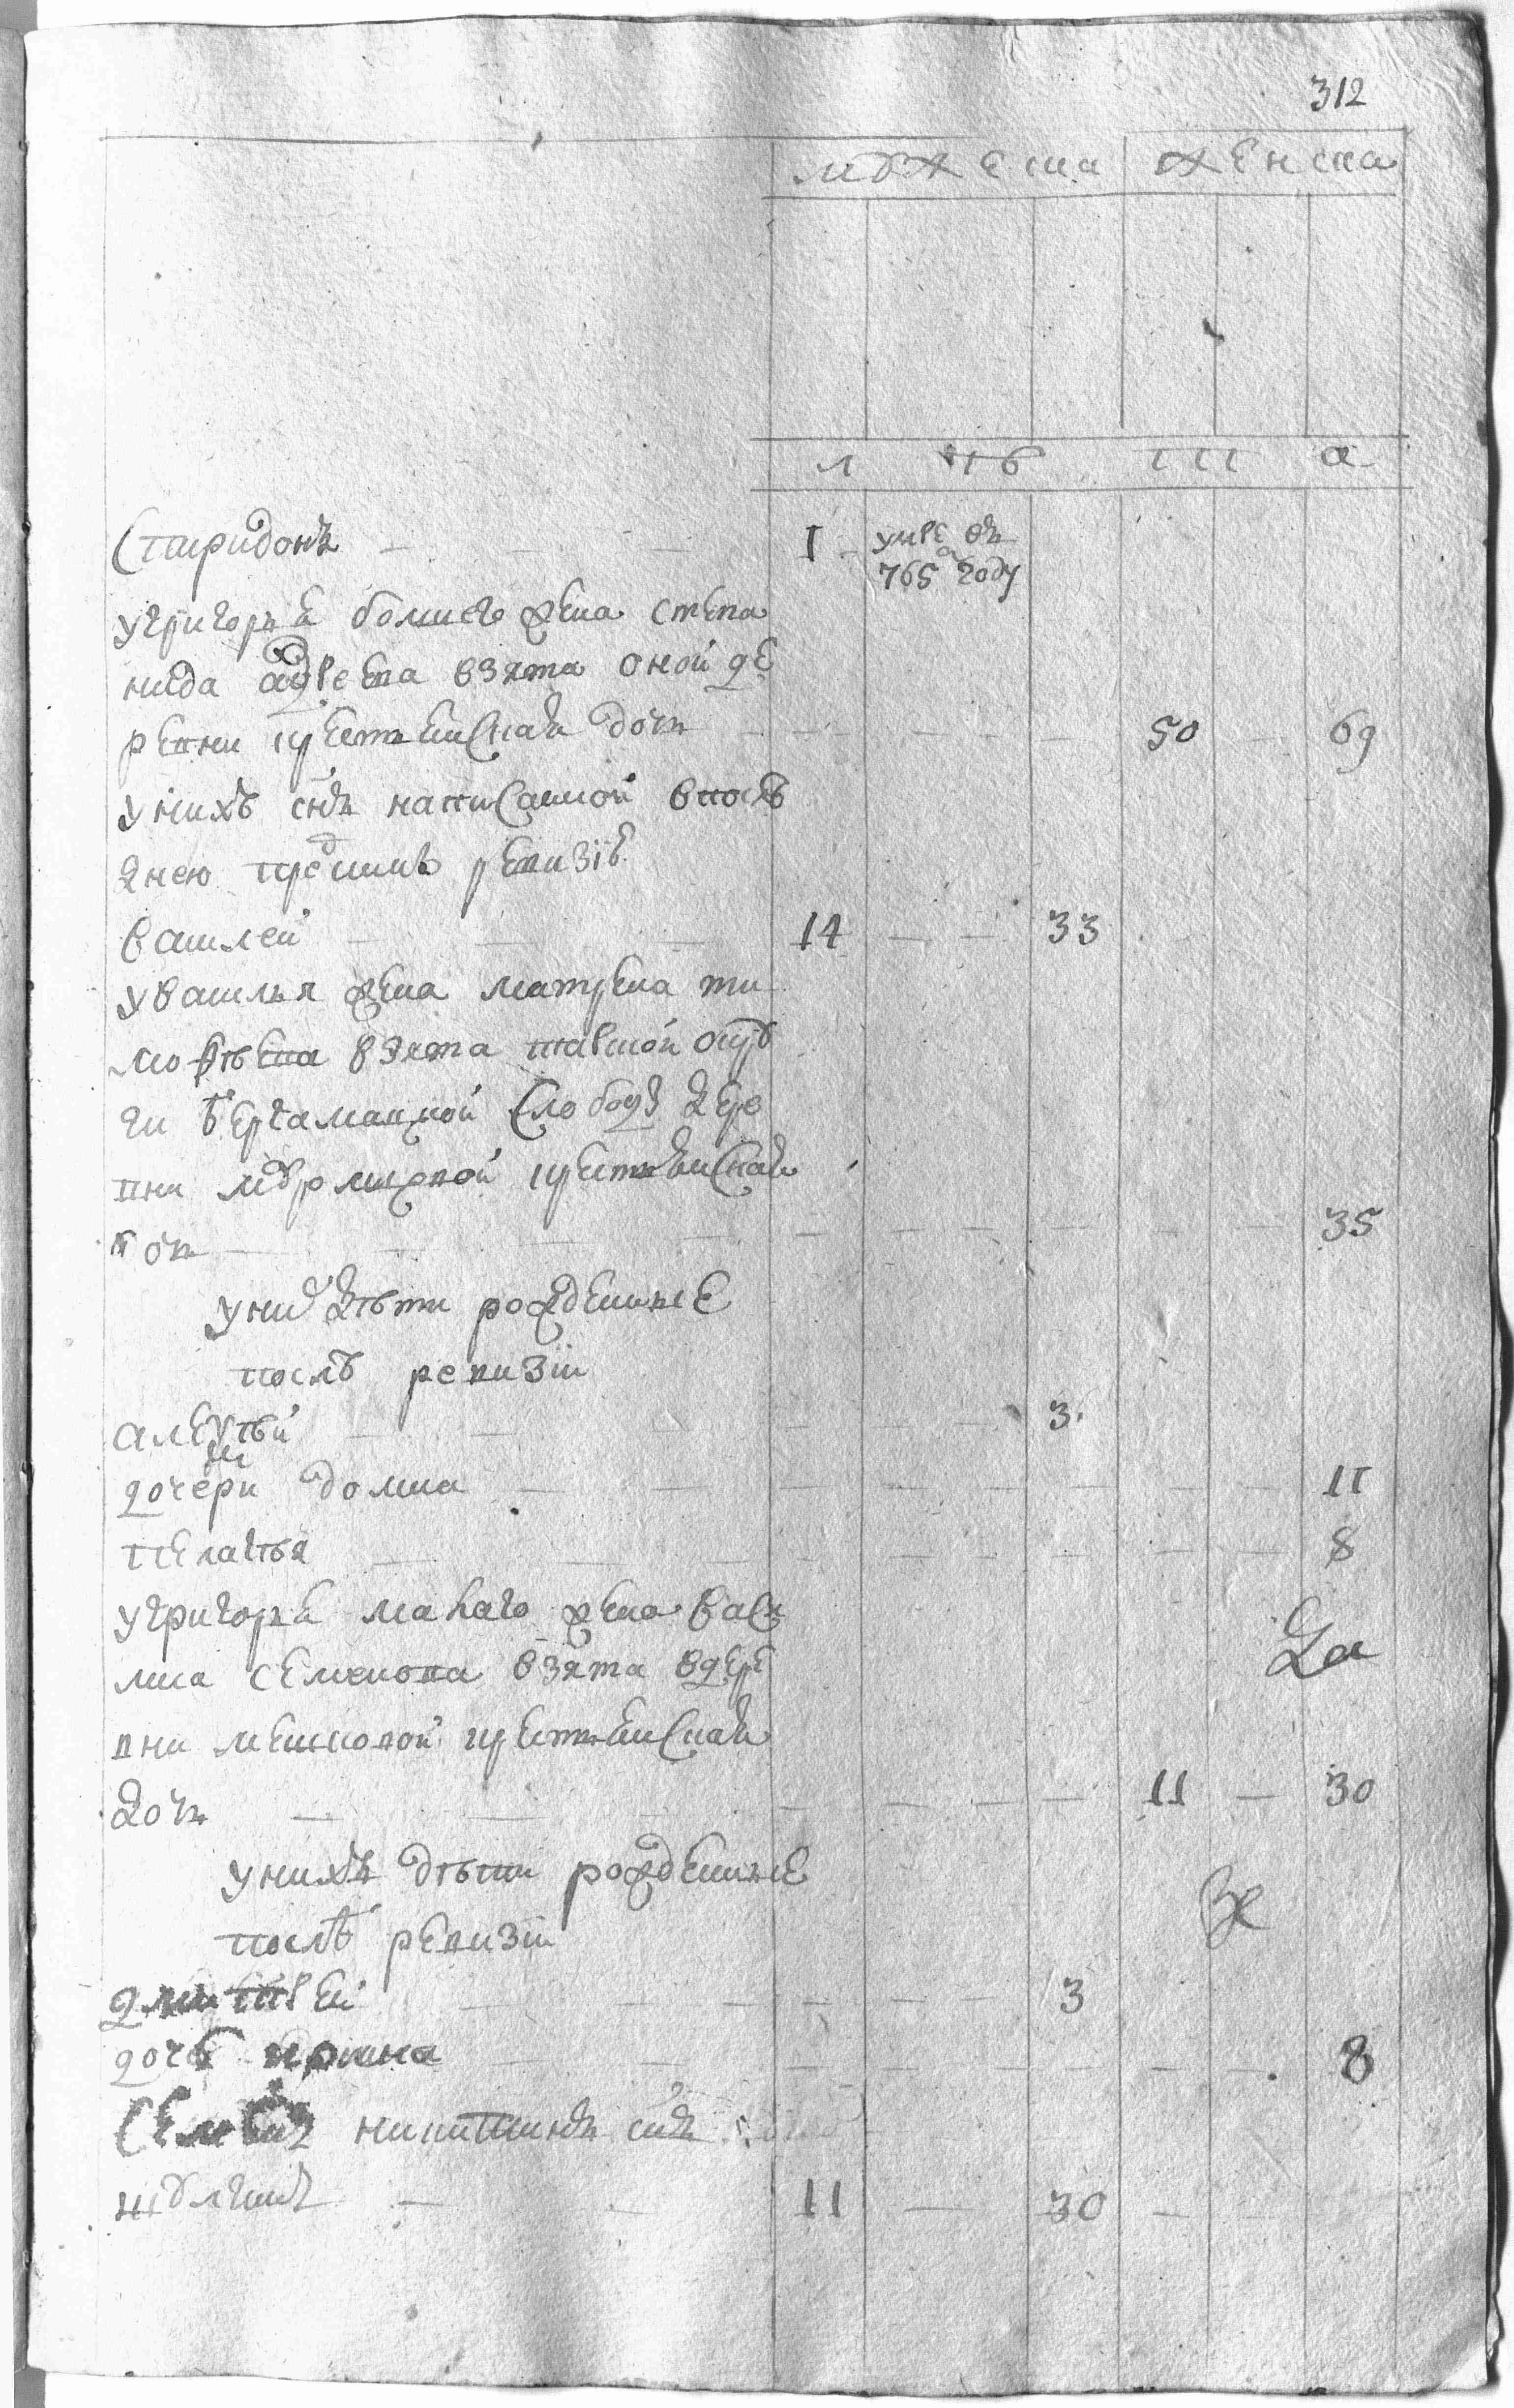 312
мужеска женска
лѣта
Спиридонъ — — — 1 умре въ
765 году
у григорья болшего жена степа
нида андреева взята оной де
ревни крестьянская дочь — — — 50 — 69
у нихъ снъ написанной в посль
днею пред сим ревизіе
василей — — — 14 — — 33
у василья жена матрена ти
мофѣева взята
слободы дере
вни крестьянская
дочь — — — 35
у них дѣти рожденные
послѣ ревизіи
алексѣй — — — 3
дочери домна — — — 11
пелагѣя — — — 8
у григорья малаго жена васи
лиса семенова взята в дере
вни мешковой крестьянская
дочь — — — 11 — 30
у нихъ дѣти рожденные
послѣ ревизіи
дмитрей — — — 3
дочь ирина — — — 8
семенъ никитинъ снъ
11 — 30 —